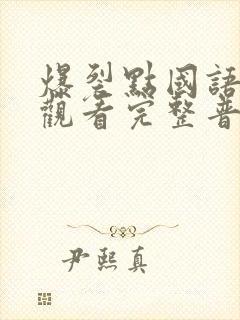 爆裂點國語
觀看完整普
尹熙真